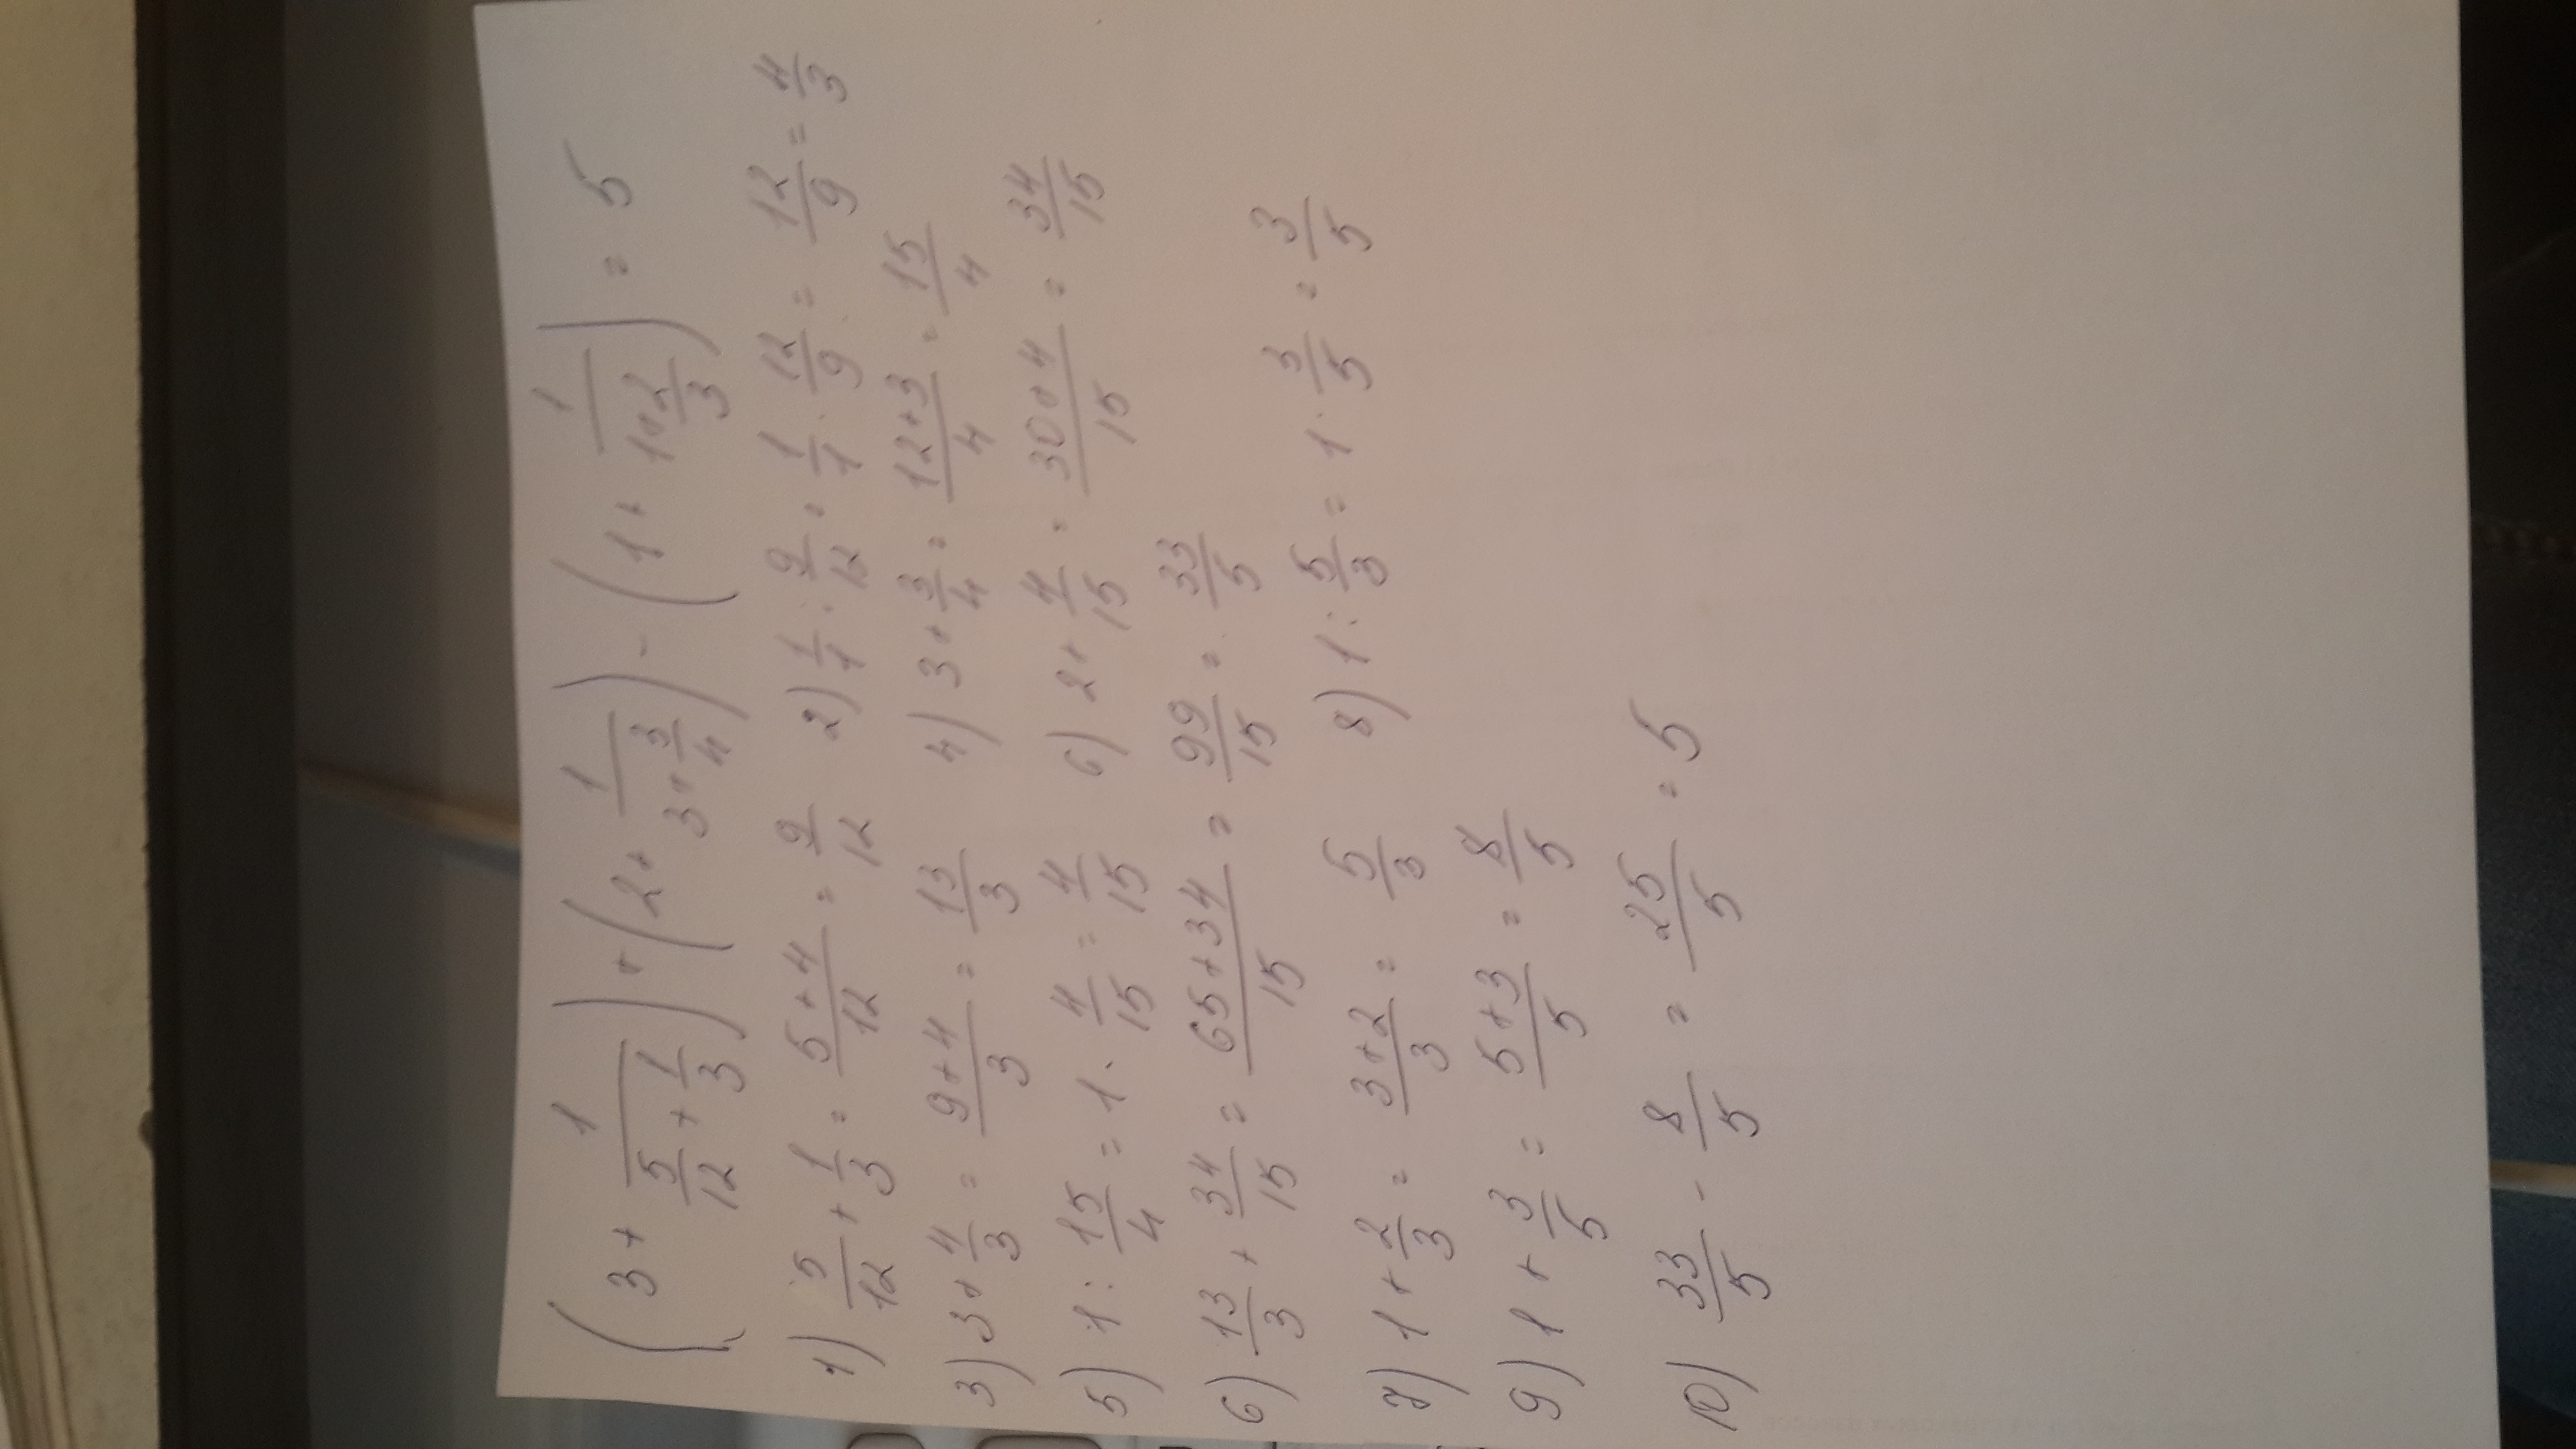 (3 + 1/(5/12 + 1/3)) + (2 + 1/(3 + 3/4)) - (1 + 1/(1 + 2/3)) = 5
1) 5/12 + 1/3 = (5+4)/12 = 9/12 2) 1/1 : 9/12 = 1/1 · 12/9 = 12/9 = 4/3
3) 3 + 4/3 = (9+4)/3 = 13/3 4) 3 + 3/4 = (12+3)/4 = 15/4
5) 1 : 15/4 = 1 · 4/15 = 4/15 6) 2 + 4/15 = (30+4)/15 = 34/15
6) 13/3 + 34/15 = (65+34)/15 = 99/15 = 33/5
7) 1 + 2/3 = (3+2)/3 = 5/3 8) 1 : 5/3 = 1 · 3/5 = 3/5
9) 1 + 3/5 = (5+3)/5 = 8/5
10) 33/5 - 8/5 = 25/5 = 5